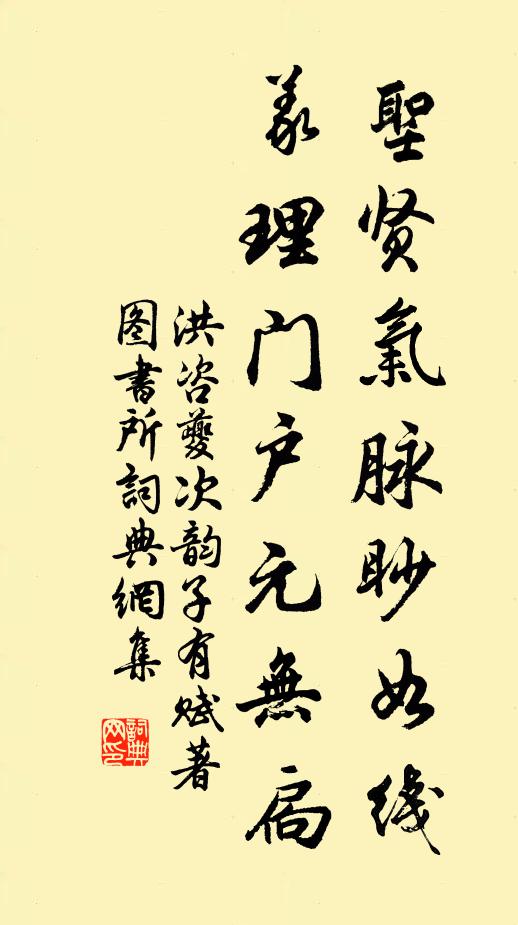 聖贤氣脉眇如线
義理门户元無扃
洪咨夔次韵子有赋著
图書所詞典網集
詞典
网印